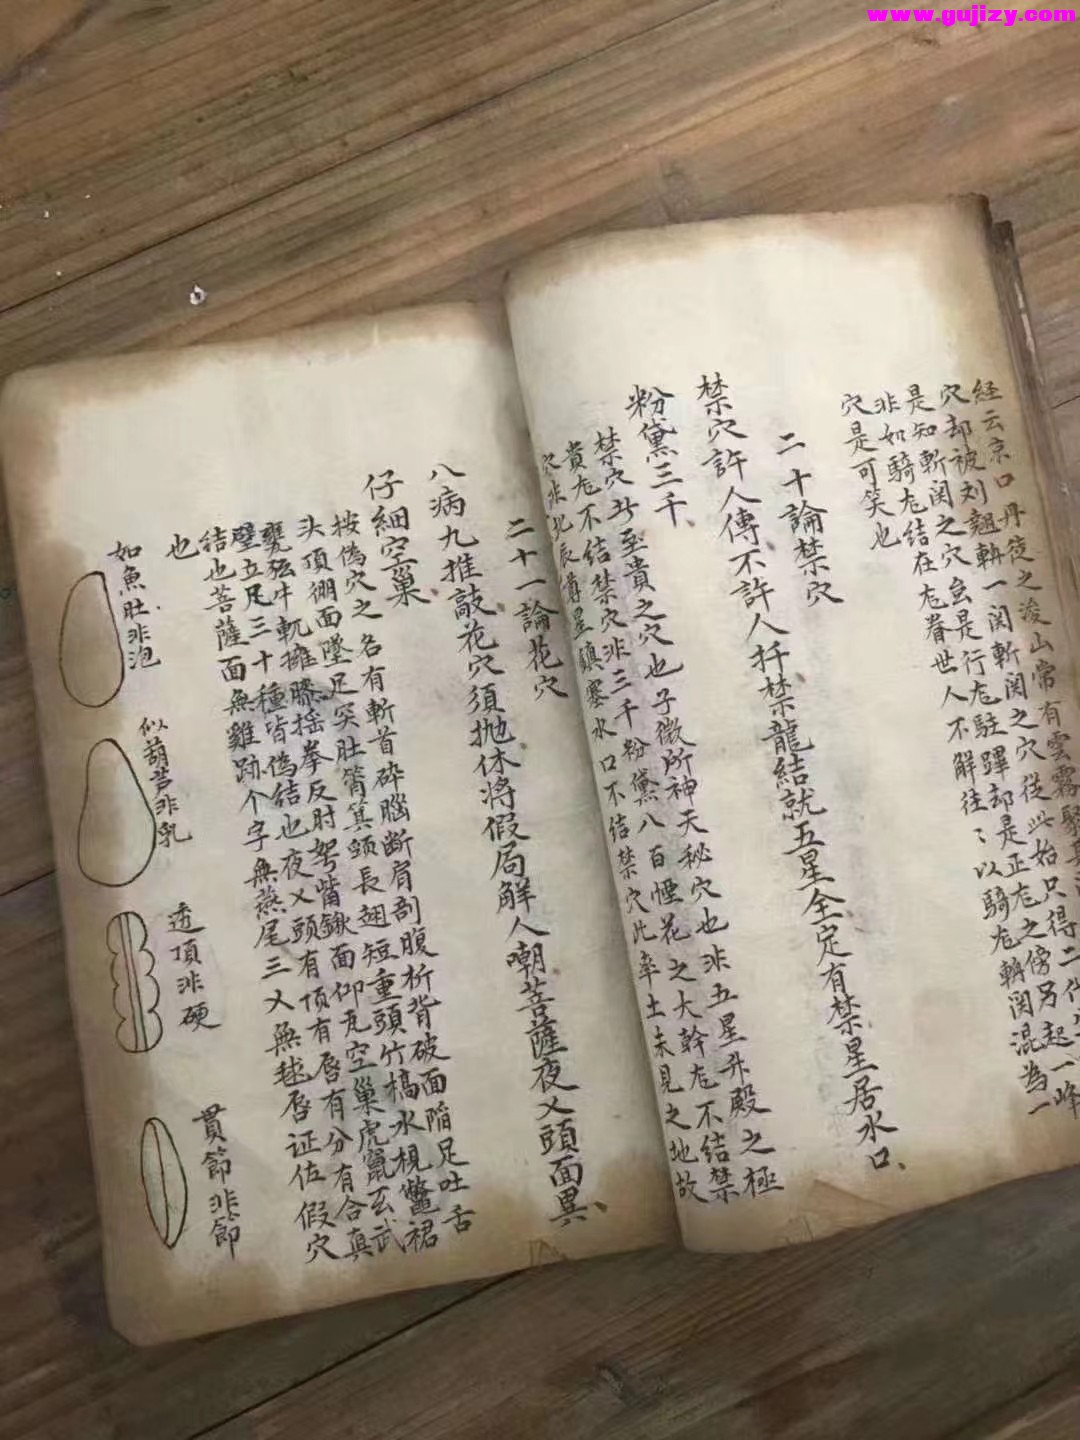 www.gujizy.com
経云京口丹徒之浚山常有雲霧
穴却被刘翹斬一関斬関之穴從此始只得二
是知斬関之穴是行尨駐蹕却是正尨之傍另起一峰
非如騎尨結在尨脊世人不解往〻以騎尨斬関混為一
穴是可笑也
二十論禁穴
禁穴許人傳不許人扦禁龍結就五星全定有禁星居水口、
粉黛三千、
禁穴廾至貴之穴也子微所神天秘穴也非五星升殿之極
貴尨不結禁穴非三千粉黛八百煙花之大幹尨不結禁
穴非北辰尊星鎮塞水口不結禁穴此率土未見之地故
二十一論花穴
八病九推敲花穴須抛休將假局觧人嘲菩薩夜乂頭面異、
仔細空巢、
按偽穴之名有斬首碎腦断肩剖腹折背破面陷足吐舌
头頂綳面墜足突肚筲箕頭長翅短重頭竹槁水梘鱉裙
甕弦牛軏擁膝揺拳反肘弩嘴鍬面仰瓦空巢虎竄玄武
壁立足三十種皆偽結也夜乂頭有頂有唇有分有合真
結也菩薩面無雞跡个字無燕尾三乂無毬唇证佐假穴
也
如魚肚非泡
似葫芦非乳
透頂非硬
貫節非節